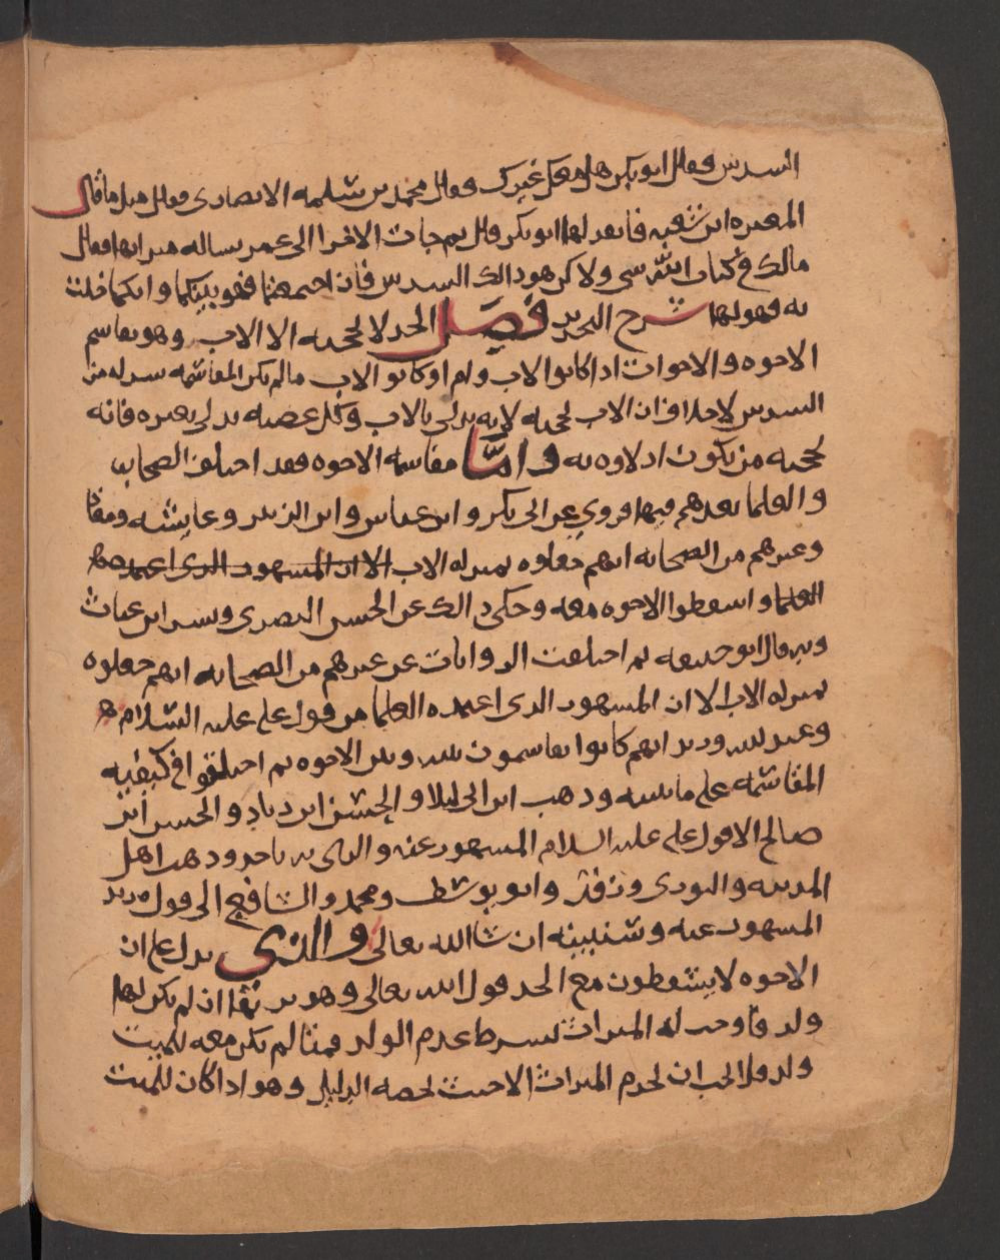 السدس فقال ابو بكر هل معك غيرك فقال محمد بن سلمه الانصارى فقال مثل ما قال
المغيره ابن شعبه فانفذ لها ابو بكر قال ثم جات الاخرا الى عمر تساله ميراثها فقال
مالك في كتاب الله شى ولاكن هو ذالك السدس فان اجتمعتما فهو بينكما وايكما خلت
به فهو لها شرح التحرير فصل الجد لا يحجبه الا الاب وهو يقاسم
الاخوه والاخوات اذا كانوا لاب وام او كانوا لاب مالم تكن المقاسمه شر له من
السدس لاخلاف ان الاب يحجبه لانه يدلى بالاب وكل عصبه يدلى بغيره فانه
يحجبه من يكون ادلاوه به واما مقاسمه الاخوه فقد اختلف الصحابه
والعلما بعدهم فيها فروي عن ابى بكر وابن عباس وابن الزبير وعايشه ومعاذ
وغيرهم من الصحابه انهم جعلوه بمنزله الاب الا ان المشهور الذى اعتمده
العلما واسقطوا الاخوه معه وحكى ذالك عن الحسن البصرى وبشر ابن غياث
وبه قال ابو حنيفه ثم اختلفت الروايات عن غيرهم من الصحابه انهم جعلوه
بمنزله الاب الا ان المشهور الذى اعتمده العلما من قول على عليه السلام
وعبدلله وزيد انهم كانوا يقاسمون بينه وبين الاخوه ثم اختلفوا في كيفيه
المقاسمه على ما نبينه وذهب ابن ابى ليلا والحسن ابن زياد والحسن ابن
صالح الا قول على عليه السلام المشهور عنه والذى به ناخذ وذهب اهل
المدينه والثورى وزفر وابو يوسف ومحمد والشافعي الى قول زيد
المشهور عنه وسنبينه ان شا الله تعالى والذى يدل على ان
الاخوه لا يسقطون مع الجد قول الله تعالى وهو يرثها ان لم يكن لها
ولد فاوجب له الميراث بشرط عدم الولد فمتا لم يكن معه للميت
ولد فلا يجب ان يحرم الميراث الا حيث يخصه الدليل وهو اذا كان للميت